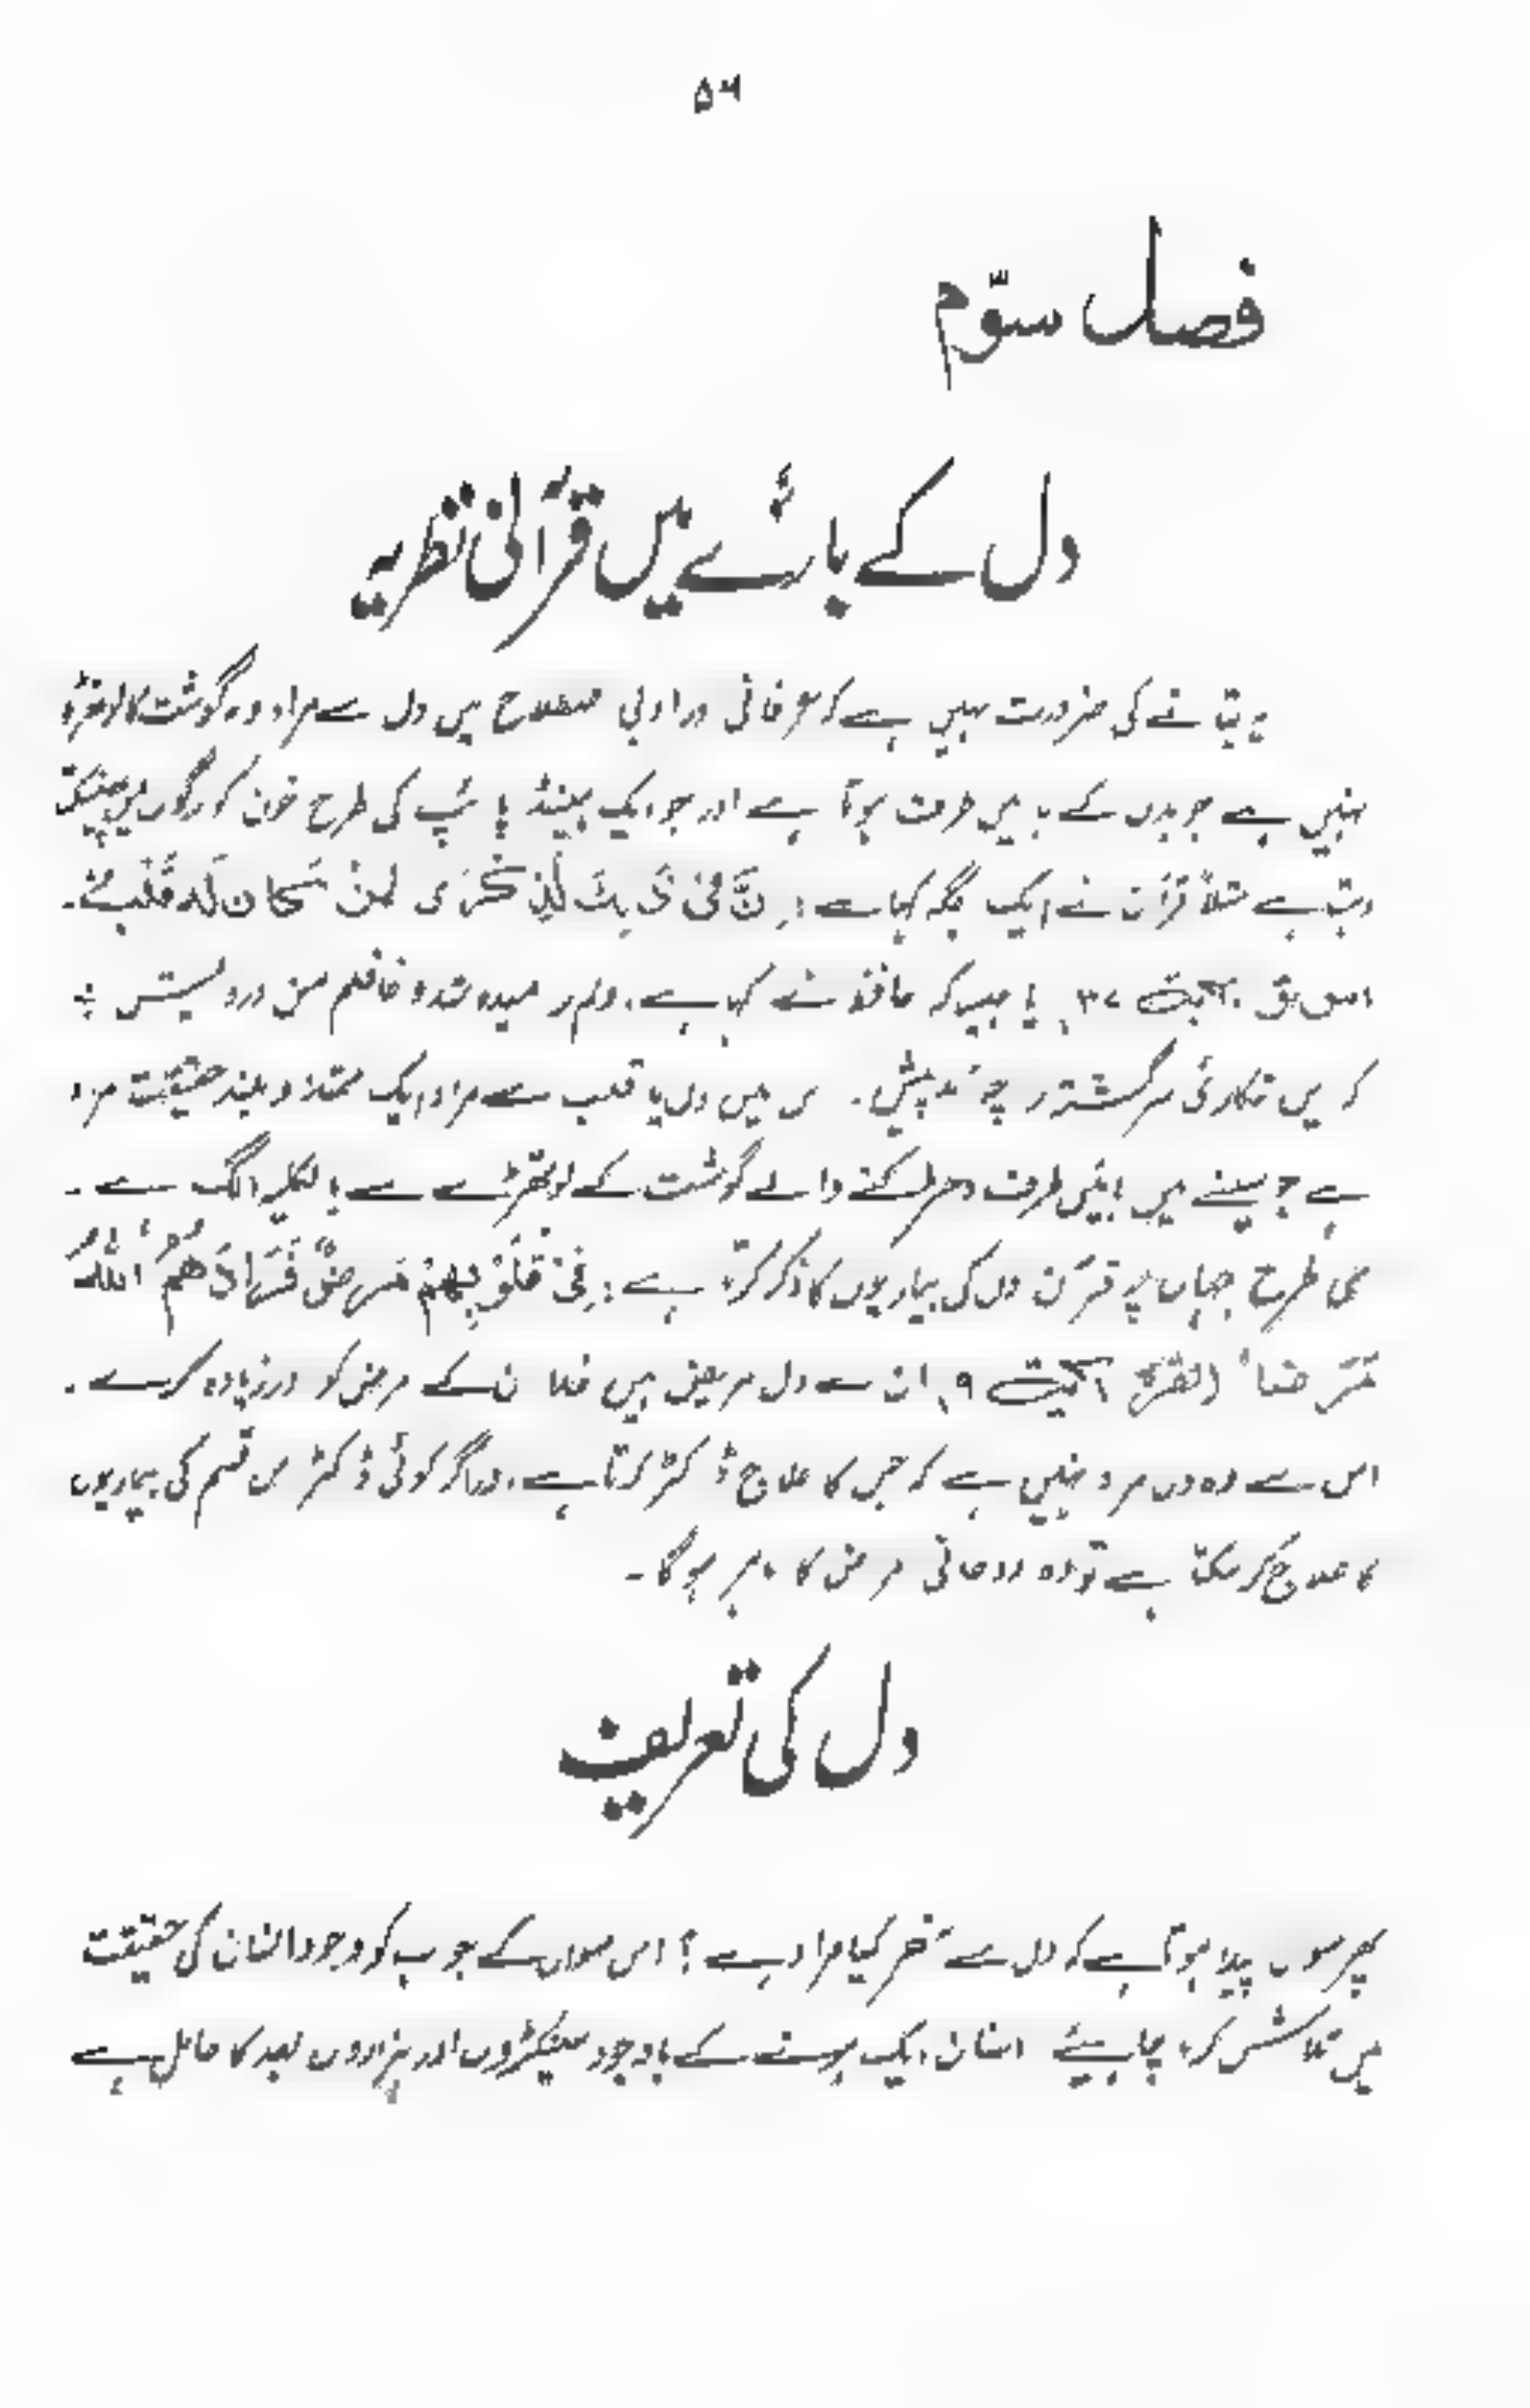 ۵۶
فصل سوّم
دل کے بارے میں قرآنی نظریہ
یہ بتانے کی ضرورت نہیں ہے کہ عرفانی اور ادبی اصطلاح میں دل سے مراد وہ گوشت کا لوتھڑا
نہیں ہے جو بدن کے بائیں طرف ہوتا ہے اور جو ایک ہینڈ پائپ کی طرح خون کو رگوں میں پھینکتا
رہتا ہے مثلاً قرآن نے ایک جگہ کہا ہے: اِنَّ فِیْ ذٰلِکَ لَذِکْرٰی لِمَنْ کَانَ لَہٗ قَلْبٌ۔
(سورہ ق آیت ۳۷) یا جیسا کہ حافظ نے کہا ہے، دلم رمیدہ شد و غافلم من درویش ؛
کہ ایں شکاری سرگشتہ را چہ آمد پیش۔ اس میں دل یا قلب سے مراد ایک ممتاز و بلند حقیقت مراد
ہے جو سینے میں بائیں طرف دھڑکنے والے گوشت کے لوتھڑے سے بالکل الگ ہے۔
اسی طرح جہاں پر قرآن دل کی بیماریوں کا ذکر کرتا ہے: فِیْ قُلُوْبِھِمْ مَرَضٌ فَزَادَھُمُ اللّٰہُ
مَرَضاً (البقرہ آیت ۹) ان کے دل مریض ہیں خدا ان کے مرض کو اور زیادہ کرے۔
اس سے وہ دل مراد نہیں ہے کہ جس کا علاج ڈاکٹر کرتا ہے، اور اگر کوئی ڈاکٹر اس قسم کی بیماریوں
کا علاج کر سکتا ہے تو وہ روحانی مرض کا ماہر ہوگا۔
دل کی تعریف
پھر سوال پیدا ہوتا ہے کہ دل سے آخر کیا مراد ہے؟ اس سوال کے جواب کو وجود انسان کی حقیقت
میں تلاش کرنا چاہیئے انسان ایک ہونے کے باوجود سینکڑوں اور ہزاروں بعد کا حامل ہے